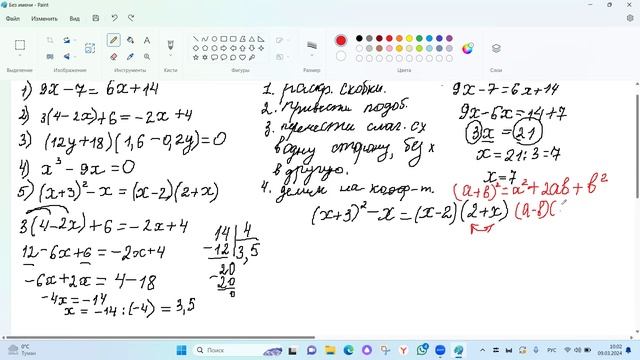 Без имени - Paint
Файл Изменить Вид
Выделение Изображение Инструменты Кисти Фигуры Размер Цвета
1) 9x-7=6x+14
2) 3(4-2x)+6=-2x+4
3) (12y+18)(1,6-0,2y)=0
4) x³-9x=0
5) (x+3)²-x=(x-2)(2+x)
3(4-2x)+6=-2x+4
12-6x+6=-2x+4
-6x+2x=4-18
-4x=-14
x=-14:(-4)=3,5
14 4
-12 3,5
20
-20
0
1. раскр. скобки.
2. привести подоб.
3. перенести слаг. с x
в одну сторону, без x
в другую.
4. делим на коэф-т.
9x-7=6x+14
9x-6x=14+7
3x=21
x=21:3=7
x=7
(a+b)²=a²+2ab+b²
(x+3)²-x=(x-2)(2+x) (a-b)(
0°C
Туман
Поиск
10:02
09.03.2024